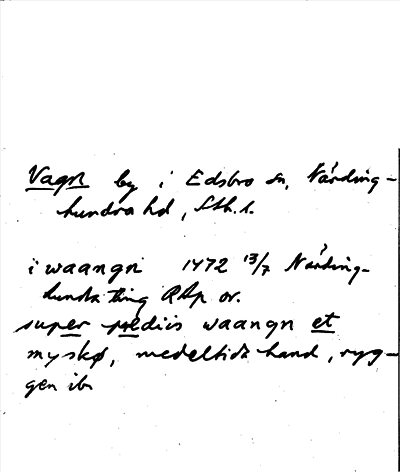 Vagn by i Edsbro sn, Närding-
hundra hd, Sth. l.
i waangn 1472 13/7 Närding-
hundra ting RAp or.
super prediis waangn et
myskø, medeltida hand, ryg-
gen ib.